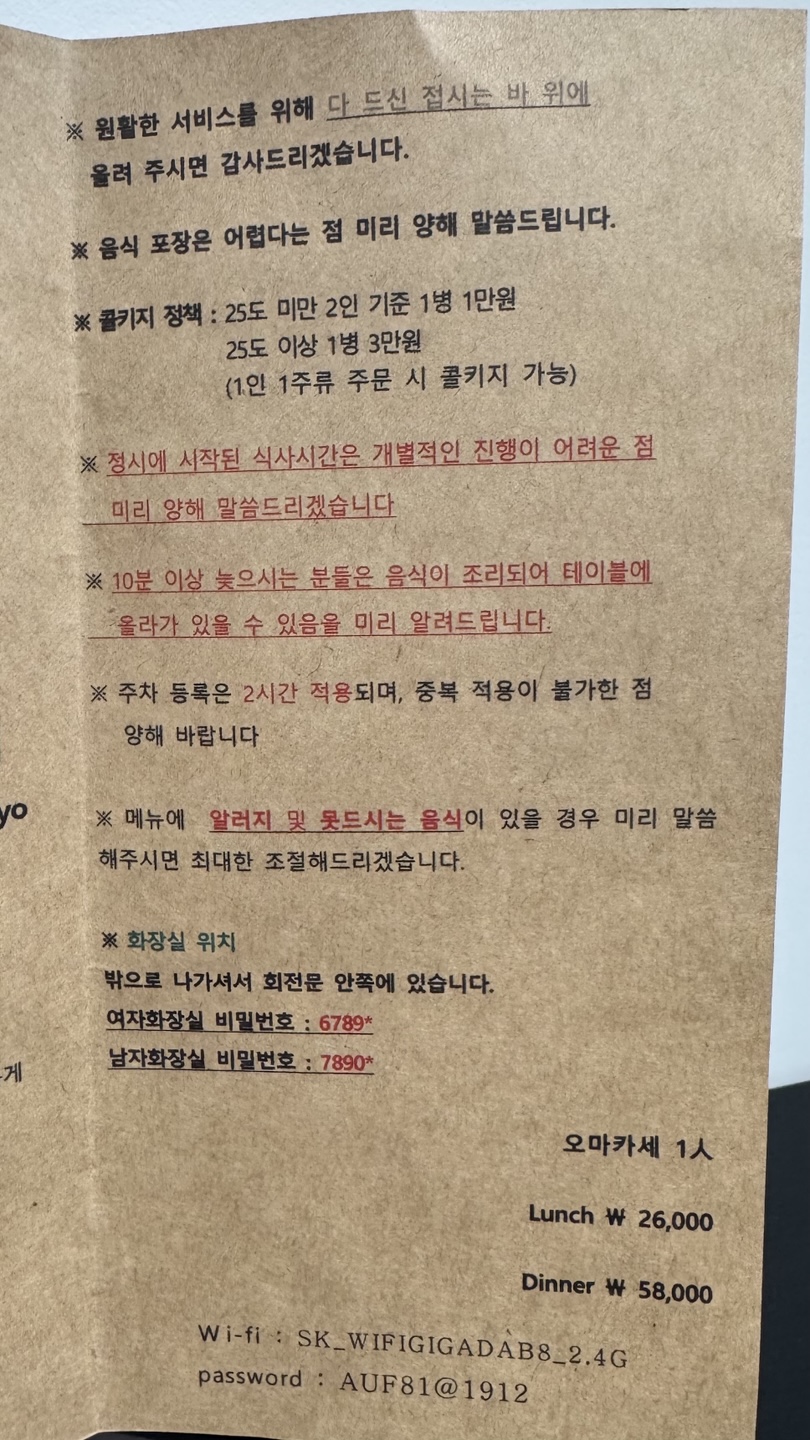 ※ 원활한 서비스를 위해 다 드신 접시는 바 위에
올려 주시면 감사드리겠습니다.
※ 음식 포장은 어렵다는 점 미리 양해 말씀드립니다.
※ 콜키지 정책 : 25도 미만 2인 기준 1병 1만원
25도 이상 1병 3만원
(1인 1주류 주문 시 콜키지 가능)
※ 정시에 시작된 식사시간은 개별적인 진행이 어려운 점
미리 양해 말씀드리겠습니다
※ 10분 이상 늦으시는 분들은 음식이 조리되어 테이블에
올라가 있을 수 있음을 미리 알려드립니다.
※ 주차 등록은 2시간 적용되며, 중복 적용이 불가한 점
양해 바랍니다
yo
※ 메뉴에 알러지 및 못드시는 음식이 있을 경우 미리 말씀
해주시면 최대한 조절해드리겠습니다.
※ 화장실 위치
밖으로 나가셔서 회전문 안쪽에 있습니다.
여자화장실 비밀번호 : 6789*
남자화장실 비밀번호 : 7890*
게
오마카세 1人
Lunch ₩ 26,000
Dinner ₩ 58,000
Wi-fi : SK_WIFIGIGADAB8_2.4G
password : AUF81@1912